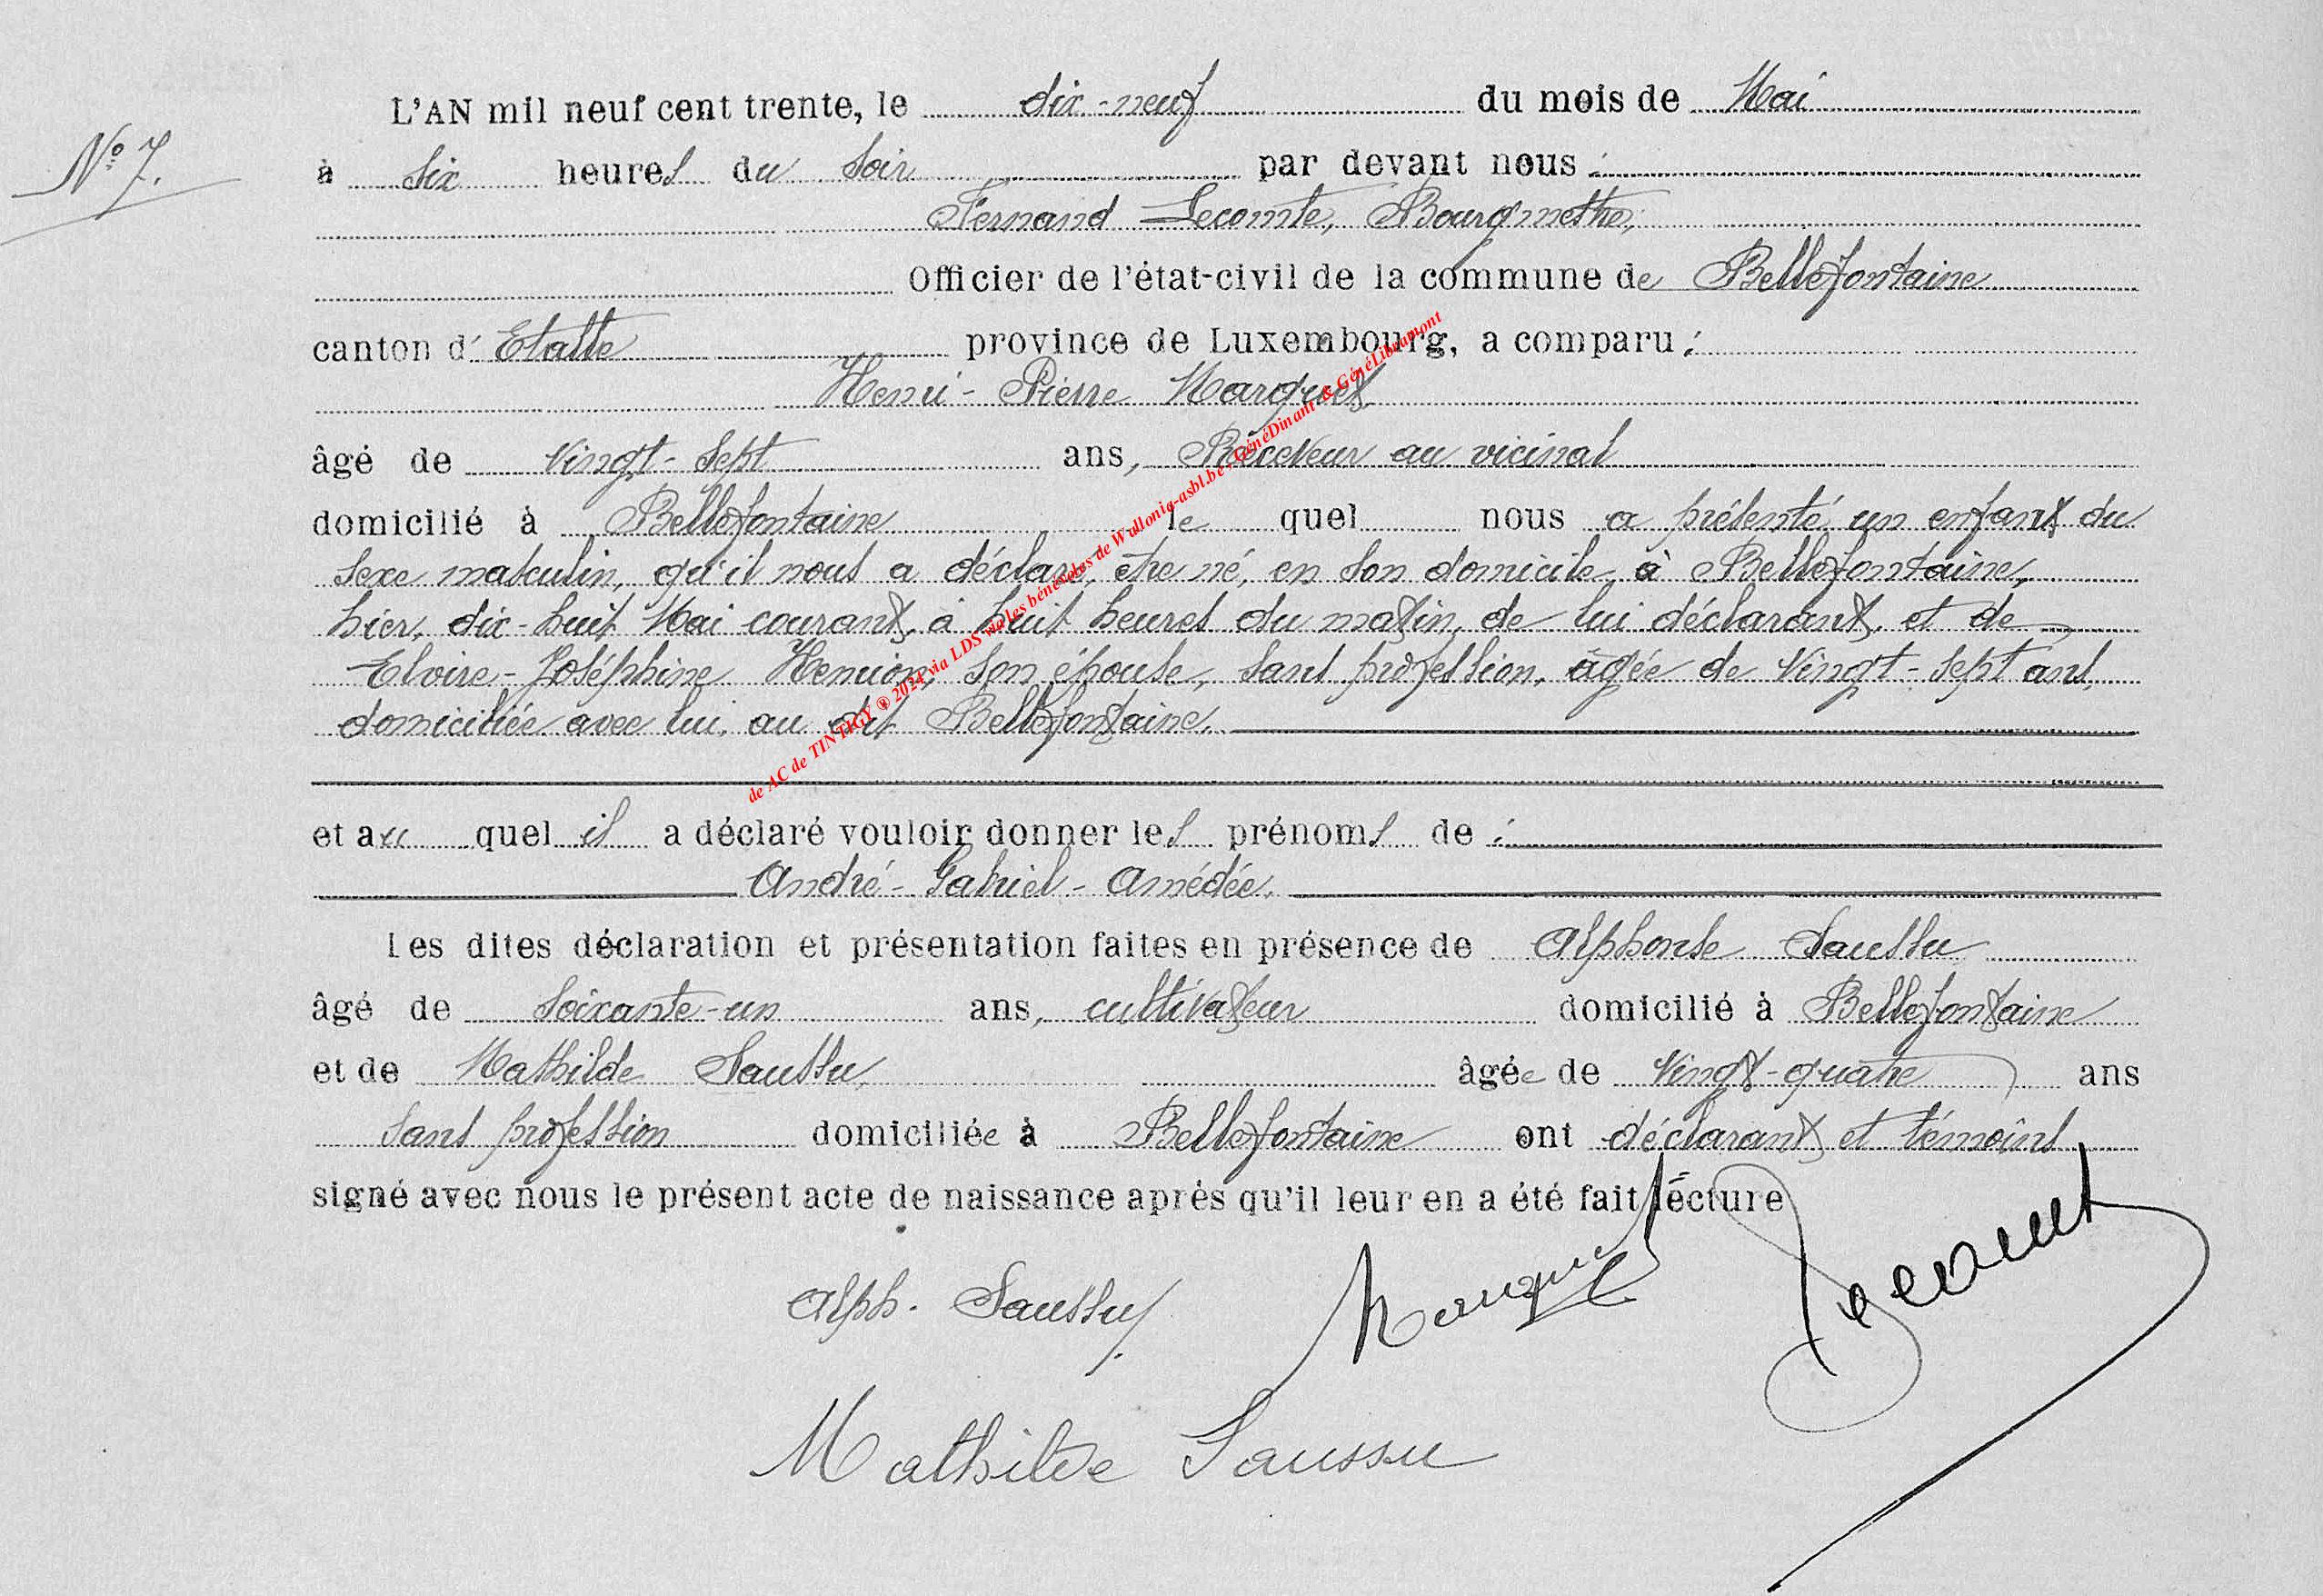 L'AN mil neuf cent trente, le dix-neuf du mois de Mai
N° 7.
à six heures du soir par devant nous :
Fernand Lecomte, Bourgmestre,
Officier de l'état-civil de la commune de Bellefontaine
canton d' Etalle province de Luxembourg, a comparu :
Henri - Pierre Marquet
âgé de vingt-sept ans, Receveur au vicinal
domicilié à Bellefontaine le quel nous a présenté un enfant du
sexe masculin, qu'il nous a déclaré être né, en son domicile, à Bellefontaine,
hier, dix-huit Mai courant, à huit heures du matin, de lui déclarant, et de
Elvire-Joséphine Henrion, son épouse, sans profession, âgée de vingt-sept ans,
domiciliée avec lui, au dit Bellefontaine.
et au quel il a déclaré vouloir donner les prénoms de :
André - Gabriel - Amédée.
Les dites déclaration et présentation faites en présence de Alphonse Saussu
âgé de soixante-un ans, cultivateur domicilié à Bellefontaine
et de Mathilde Saussu, âgée de vingt-quatre ans
sans profession domiciliée à Bellefontaine ont déclarant et témoins
signé avec nous le présent acte de naissance après qu'il leur en a été fait lecture
Alph. Saussu Marquet Lecomte
Mathilde Saussu
de AC de TINTIGY ® 2024 via LDS via les bénévoles de Wallonia-asbl.be , GénéDinant & GénéLibramont